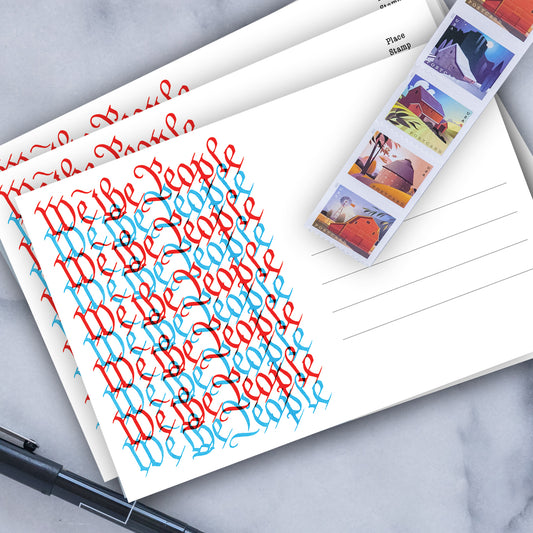 We the People
Place
Stamp
We the People
We the People
We the People
We the People
We the People
We the People
We the People
We the People
We the People
We the People
We the People